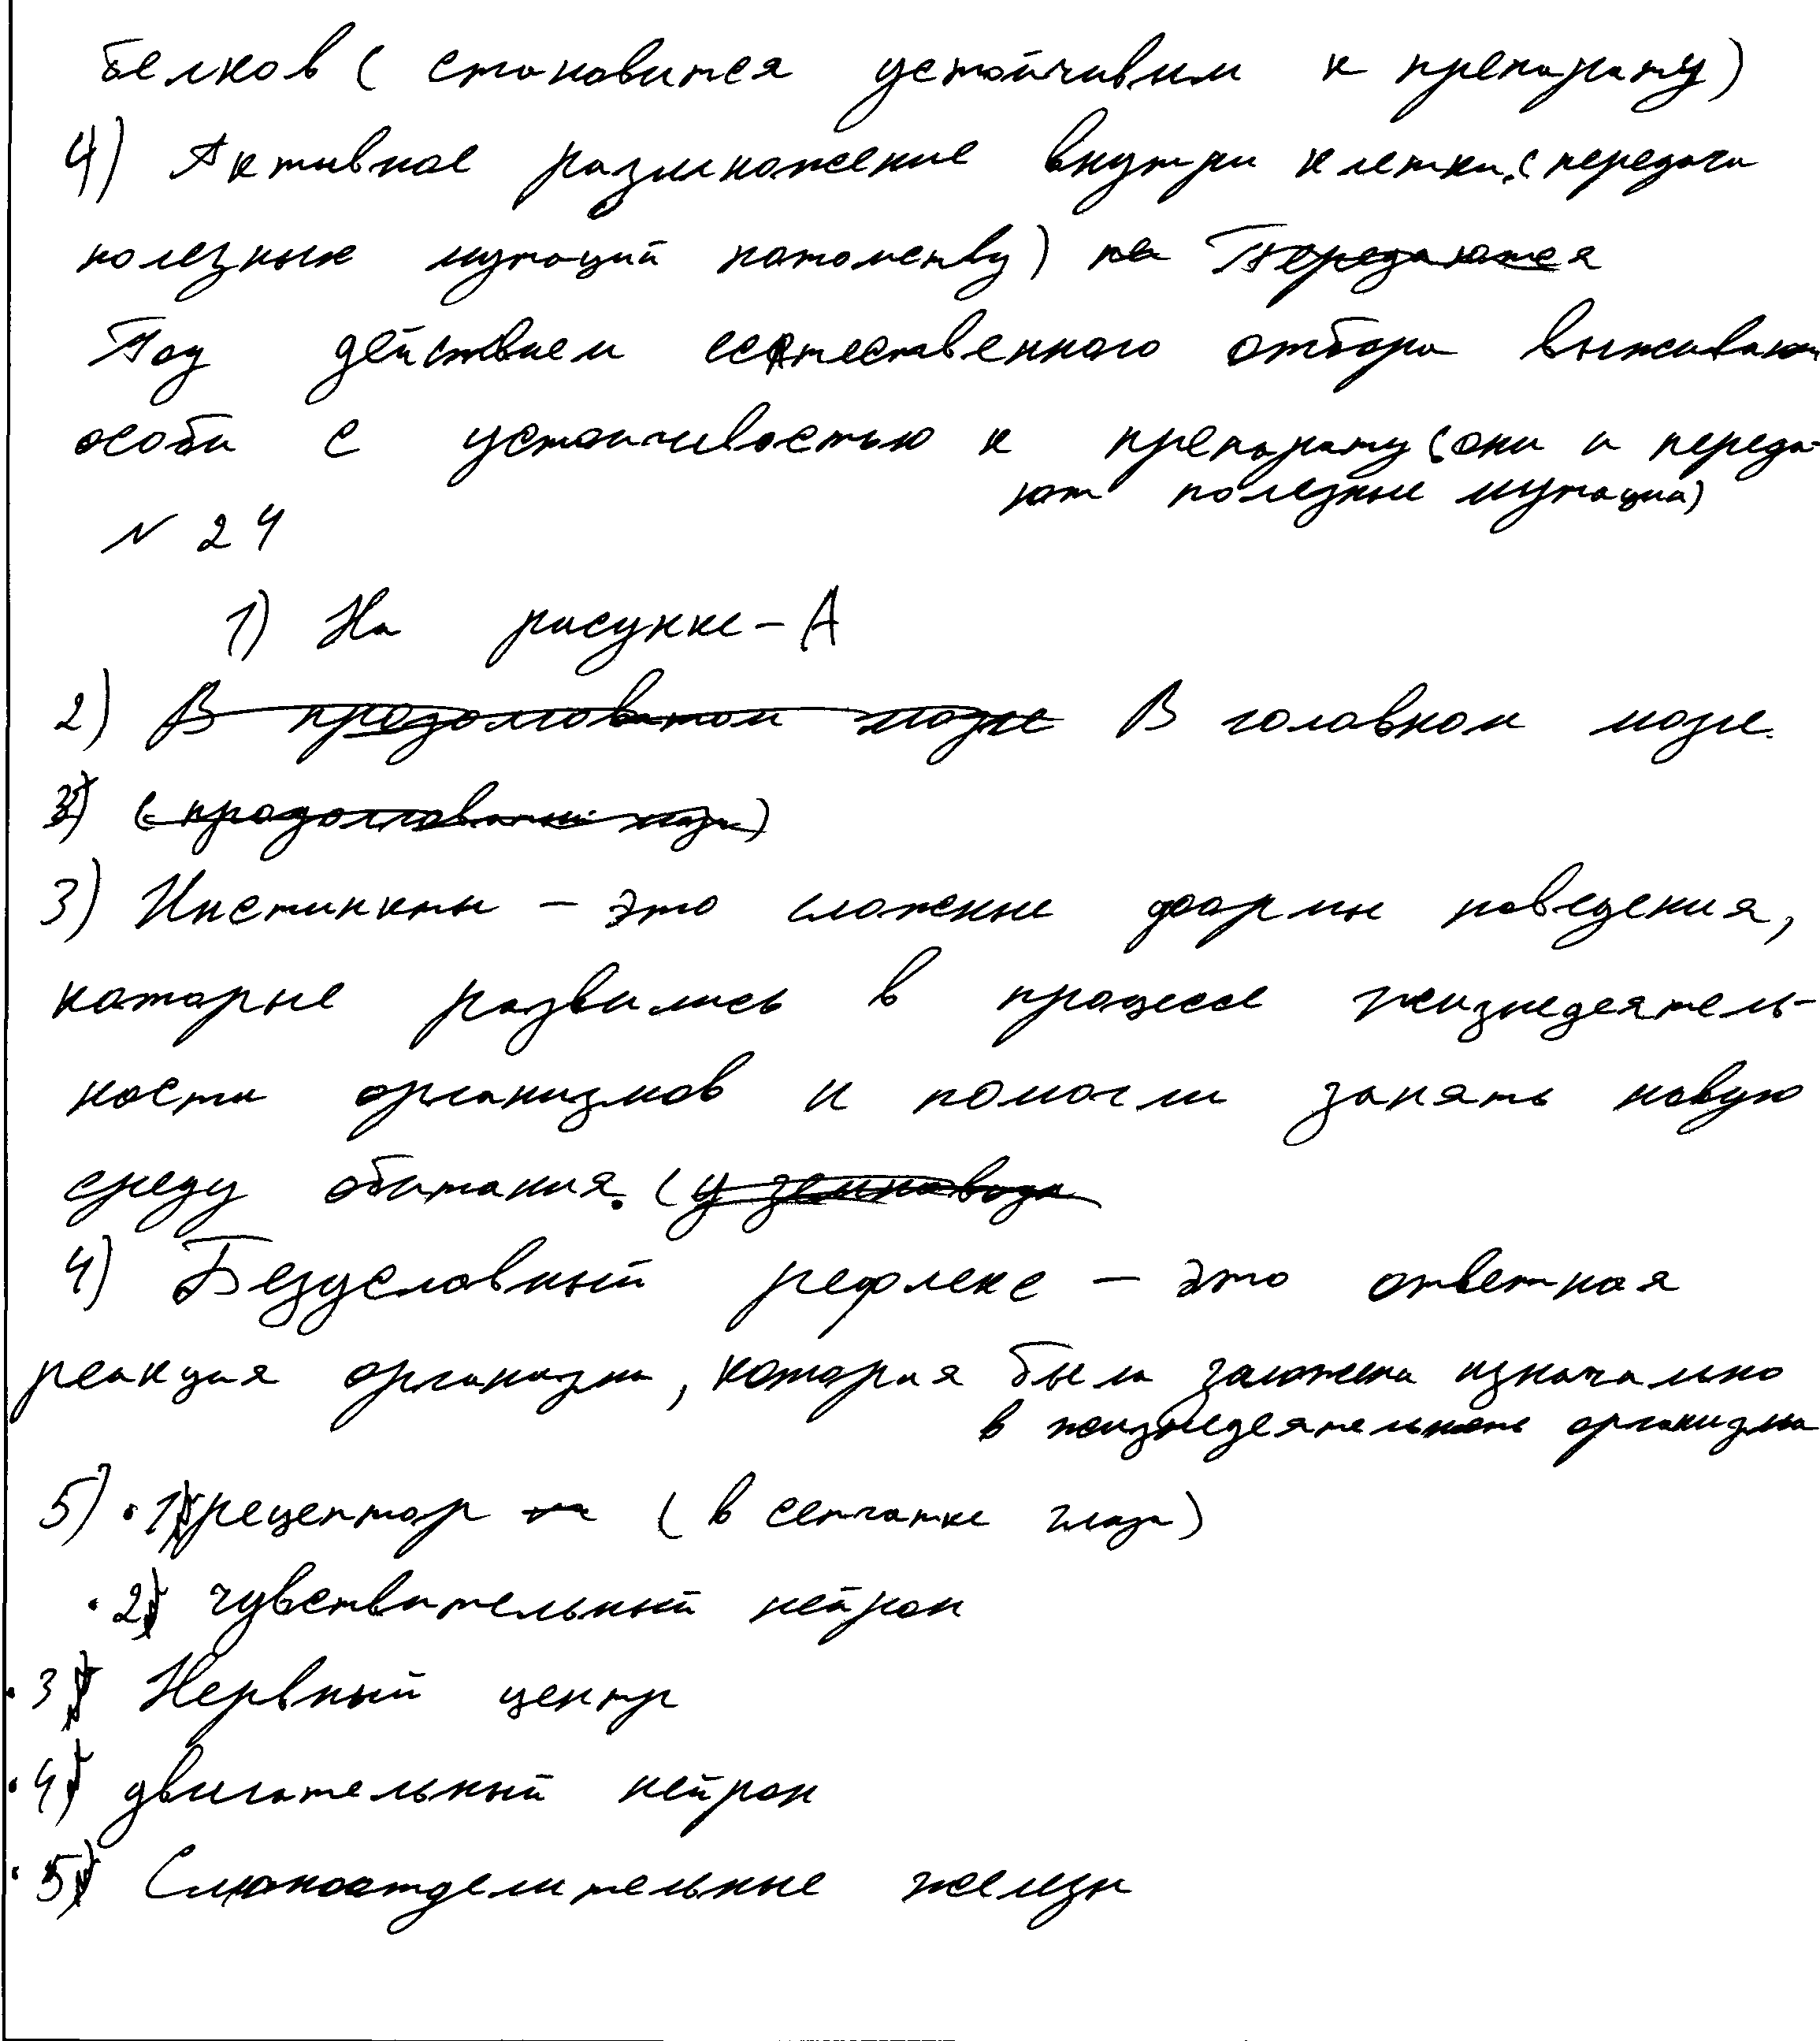 белков ( становится устойчивым к препарату)
4) Активное размножение внутри клетки. (передача
полезных мутаций потомству) па Передаются
Под действием естественного отбора выживают
особи с устоичивостью к препарату (они и переда-
ют полезные мутации)
№ 24
1) На рисунке - А
2) В продолговатом мозге В головном мозге.
3) ( продолговатый мозг )
3) Инстинкты - это сложные формы поведения,
которые развились в процессе жизнедеятель-
ности организмов и помогли занять новую
среду обитания. (у земновод
4) Безусловный рефлекс - это ответная
реакция организма, которая была заложена изначально
в жизнедеятельность организма
5) • 1) рецептор (в сетчатке глаза)
• 2) чувствительный нейрон
• 3) Нервный центр
• 4) двигательный нейрон
• 5) Слюноотделительные железы